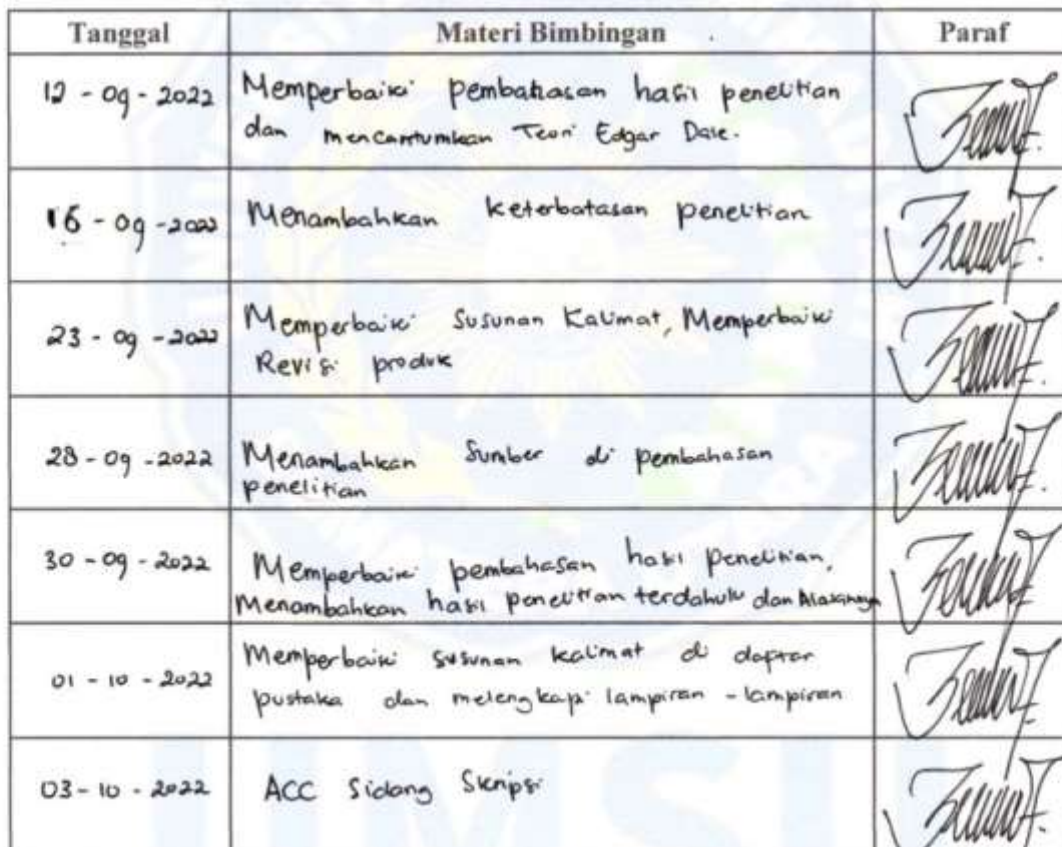 Tanggal Materi Bimbingan Paraf
12 - 09 - 2022 Memperbaiki pembahasan hasil penelitian
dan mencantumkan Teori Edgar Dale.
16 - 09 - 2022 Menambahkan keterbatasan penelitian
23 - 09 - 2022 Memperbaiki Susunan Kalimat, Memperbaiki
Revisi produk
28 - 09 - 2022 Menambahkan Sumber di pembahasan
penelitian
30 - 09 - 2022 Memperbaiki pembahasan hasil penelitian,
Menambahkan hasil penelitian terdahulu dan Alasannya
01 - 10 - 2022 Memperbaiki susunan kalimat di daftar
pustaka dan melengkapi lampiran - lampiran
03 - 10 - 2022 ACC Sidang Skripsi
UMSU